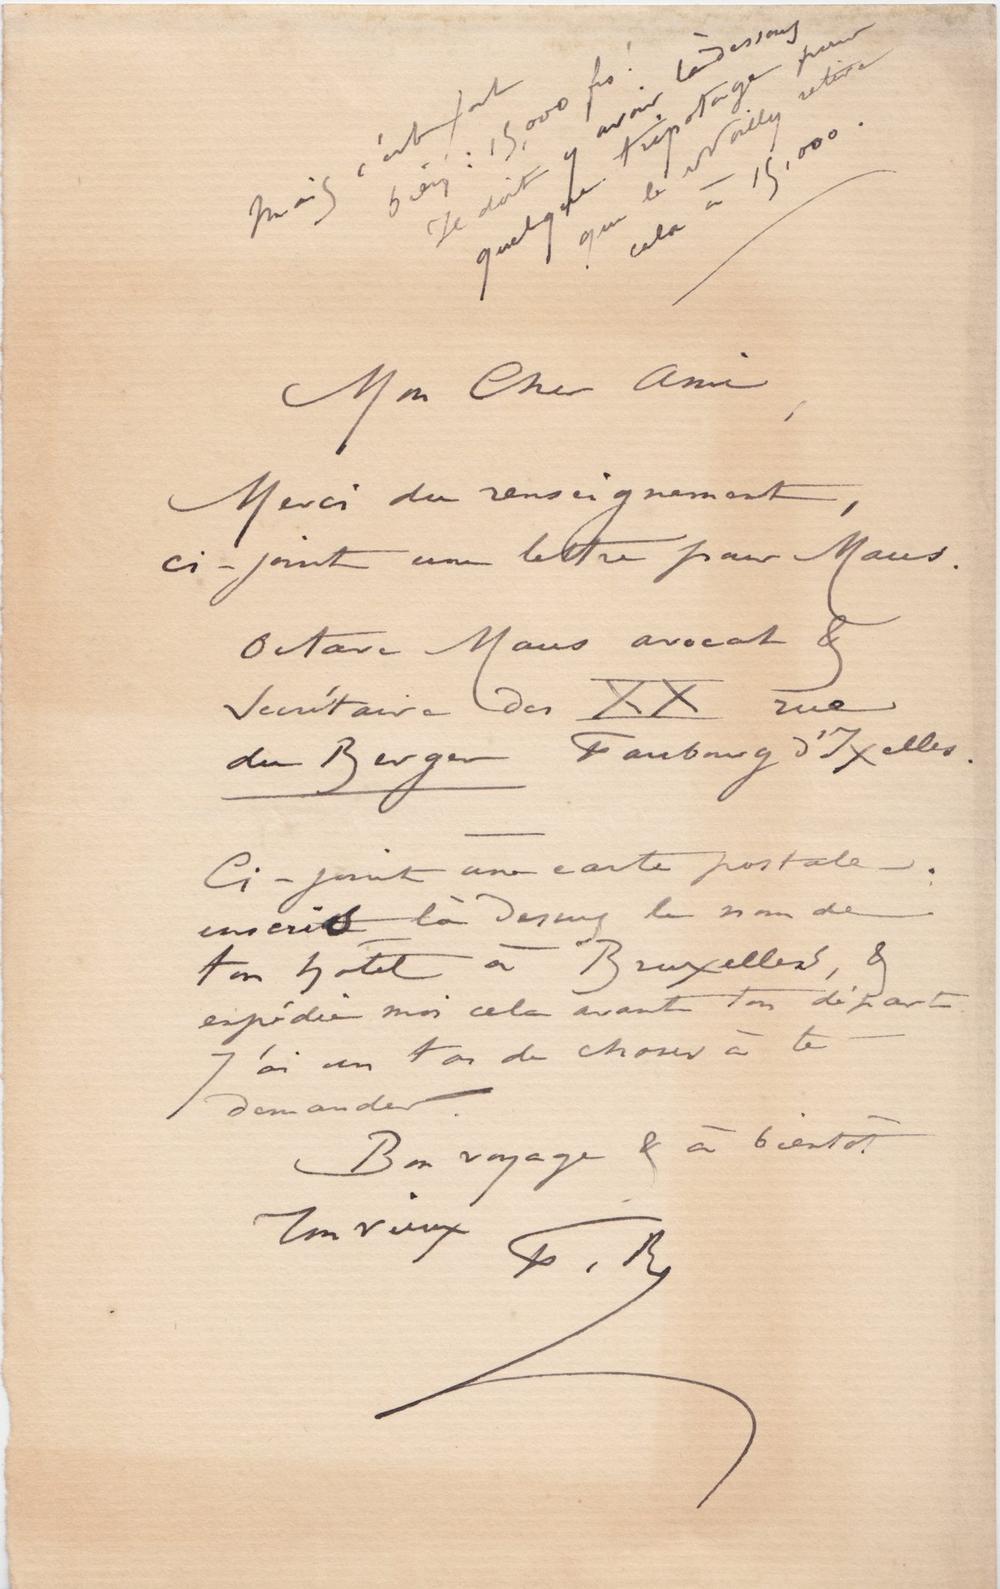 Mais c'est fort
bien : 15,000 frs !
Il doit y avoir là dessous
quelque tripotage pour
que le Wailly retire
cela à 15,000.
Mon Cher Ami,
Merci du renseignement,
ci-joint une lettre pour Maus.
Octave Maus avocat &
Secrétaire des XX rue
du Berger Faubourg d'Ixelles.
Ci-joint une carte postale.
inscris là dessus le nom de
ton hôtel à Bruxelles, &
expédie moi cela avant ton départ
J'ai un tas de choses à te
demander.
Bon voyage & à bientôt
Ton vieux
F. R